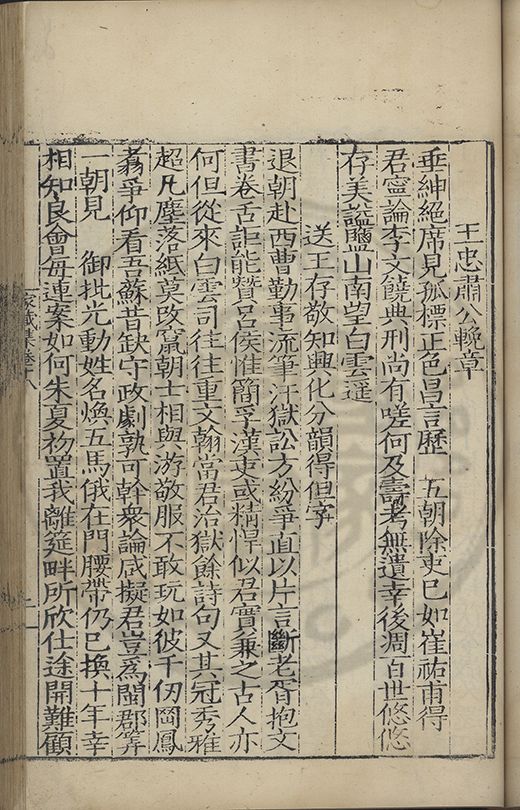 王忠肅公輓章
垂紳絕席見孤標正色昌言歷　五朝除吏已如崔祐甫得
君寧論李文饒典刑尚有嗟何及壽考無遺幸後凋百世悠悠
存美謚鹽山南望白雲遥
送王存敬知興化分韻得但字
退朝赴西曹勤事流筆汗獄訟方紛爭直以片言斷老胥抱文
書卷舌詎能贊呂侯惟簡孚漢吏或精悍似君實兼之古人亦
何但從來白雲司往往重文翰當君治獄餘詩句又其冠秀雅
超凡塵落紙莫改竄朝士相與游敬服不敢玩如彼千仞岡鳳
翥爭仰看吾蘇昔缺守政劇孰可幹衆論咸擬君豈爲閩郡筭
一朝見　御批光動姓名煥五馬俄在門腰帶仍已換十年幸
相知良會每連案如何朱夏初置我離筵畔所欣仕途開難顧
家藏集卷十八